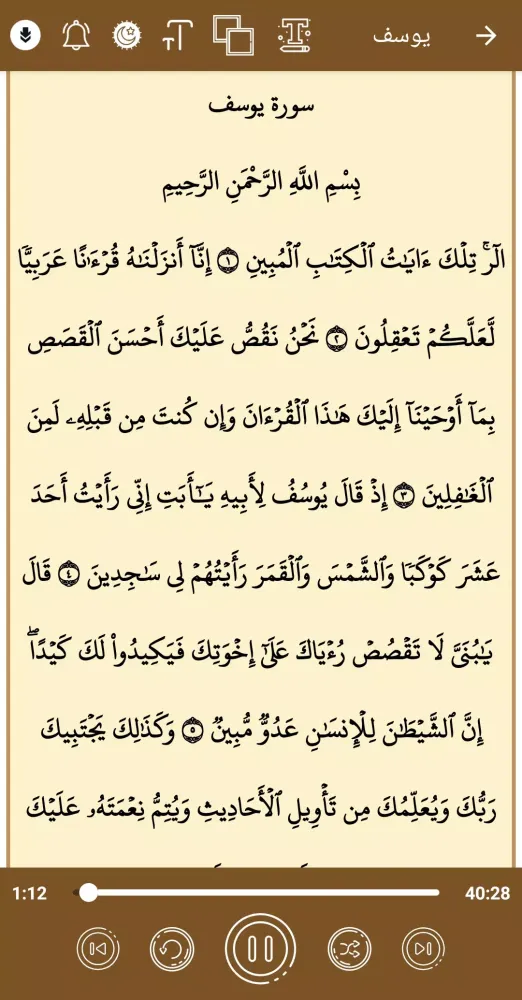 يوسف
سورة يوسف
بِسْمِ اللَّهِ الرَّحْمَنِ الرَّحِيمِ
الٓرۚ تِلْكَ ءَايَٰتُ ٱلْكِتَٰبِ ٱلْمُبِينِ ١ إِنَّآ أَنزَلْنَٰهُ قُرْءَٰنًا عَرَبِيًّا
لَّعَلَّكُمْ تَعْقِلُونَ ٢ نَحْنُ نَقُصُّ عَلَيْكَ أَحْسَنَ ٱلْقَصَصِ
بِمَآ أَوْحَيْنَآ إِلَيْكَ هَٰذَا ٱلْقُرْءَانَ وَإِن كُنتَ مِن قَبْلِهِۦ لَمِنَ
ٱلْغَٰفِلِينَ ٣ إِذْ قَالَ يُوسُفُ لِأَبِيهِ يَٰٓأَبَتِ إِنِّى رَأَيْتُ أَحَدَ
عَشَرَ كَوْكَبًا وَٱلشَّمْسَ وَٱلْقَمَرَ رَأَيْتُهُمْ لِى سَٰجِدِينَ ٤ قَالَ
يَٰبُنَىَّ لَا تَقْصُصْ رُءْيَاكَ عَلَىٰٓ إِخْوَتِكَ فَيَكِيدُوا۟ لَكَ كَيْدًاۖ
إِنَّ ٱلشَّيْطَٰنَ لِلْإِنسَٰنِ عَدُوٌّ مُّبِينٌ ٥ وَكَذَٰلِكَ يَجْتَبِيكَ
رَبُّكَ وَيُعَلِّمُكَ مِن تَأْوِيلِ ٱلْأَحَادِيثِ وَيُتِمُّ نِعْمَتَهُۥ عَلَيْكَ
1:12 40:28